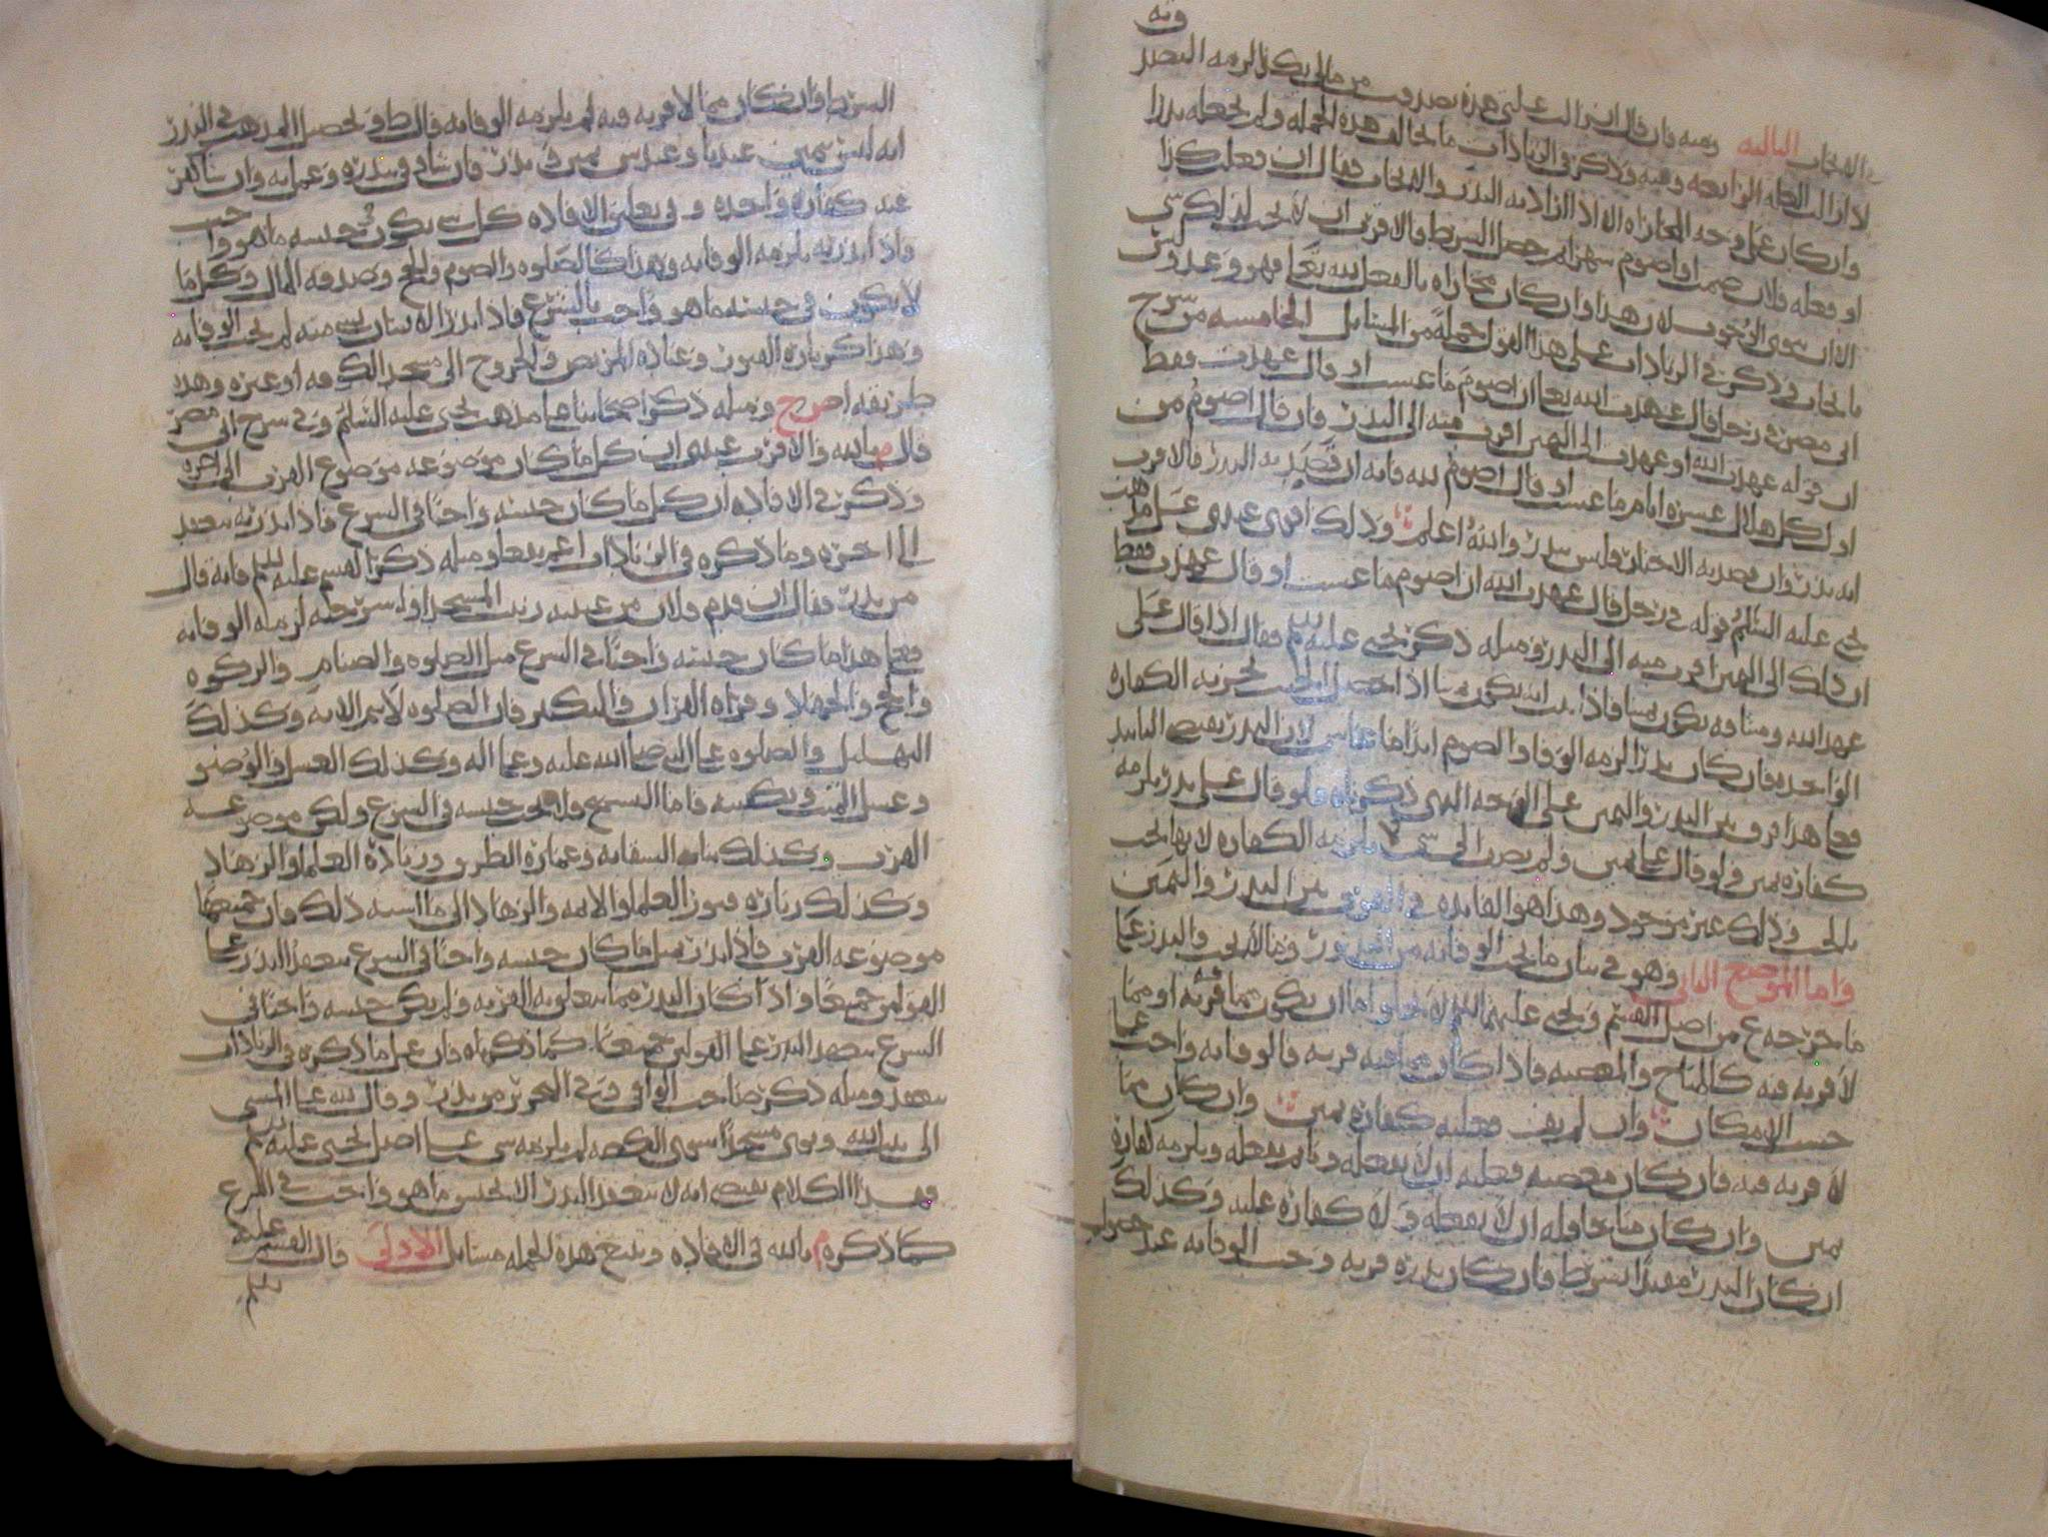 وفيه
والايجاب الثالثه وفيه فان قال ان زالت علتي هذه تصدقت من مالي بكذا لزمه التصدق
لاذا زالت العله الرابعه وفيه وذكر في الزيادات ما يخالف هذه الجمله ولم يجعله نذرا
وان كان على وجه المجازاه الا اذا اراد به النذر والايجاب فقال ان فعلت كذا
او فعله فلان صمت او اصوم شهرا ثم حصل الشرط فالاقرب ان لا يجب لذلك شي
الا ان ينوي الوجوب لان هذا وان كان مجازاه بالفعل لله تعالى فهو وعد وليس
بايجاب وذكر في الزيادات على هذا القول جملة من المسائل الخامسه من شرح
ابي مضر في رجل قال عهدت الله تعالى ان اصوم ما عشت او قال عهدت فقط
ان قوله عهدت الله او عهدت الى اليمين اقرب منه الى النذر وان قال اصوم من
اول كل هلال عشرة ايام ما عشت او قال اصوم لله فانه ان قصد به النذر فالاقرب
انه نذر وان قصد به الاخبار فليس بنذر والله اعلم وذلك اقوى عندي على مذهب
يحيى عليه السلم قوله في رجل قال عهدت الله ان اصوم ما عشت او قال عهدت فقط
ان ذلك الى اليمين اقرب منه الى النذر ومثله ذكر يحيى عليه السلم فقال اذا قال علي
عهد الله وميثاقه يكون يمينا فاذا ثبت انه يكون يمينا اذا حصل الحنث يجزيه الكفاره
الواحده فان كان نذرا لزمه الوفا والصوم ابدا ما عاش لان النذر يقتضي التابيد
فعلى هذا فرق بين النذر واليمين على الوجه الذي ذكرناه فلو قال علي نذر يلزمه
كفاره يمين ولو قال علي يمين ولم يضف الى شي لا يلزمه الكفاره لانها تجب
بالحنث وذلك غير موجود وهذا هو الفائده في الفرق بين النذر واليمين
واما الموضع الثاني وهو في بيان ما يجب الوفا به من النذور وما لا يجب والنذر على
ما خرجه ع من اصل القسم ويحيى عليهما السلم لا يخلو اما ان يكون مما فيه قربه او مما
لا قربه فيه كالمباح والمعصيه فاذا كان مما فيه قربه فالوفا به واجب على
حسب الامكان وان لم يف فعليه كفارة يمين وان كان مما
لا قربه فيه فان كان معصيه فعليه ان لا يفعله وان لم يفعله ويلزمه كفارة
يمين وان كان مباحا فله ان لا يفعله ولا كفارة عليه وكذلك
ان كان النذر مقيدا بشرط فان كان نذره قربه وجب الوفا به عند حصول
الشرط وان كان مما لا قربه فيه لم يلزمه الوفا به قال ط وتحصيل المذهب في النذر
انه ليس بيمين عندنا وعند ش يمين في نذر فان شا وفى بنذره وعمل به وان شا كفر
عنه كفاره واحده وفي تعليق الافاده كل شي يكون في جنسه ما هو واجب
واذا نذر به يلزمه الوفا به وهذا كالصلوه والصوم والحج وصدقه المال وكل ما
لا يكون في جنسه ما هو واجب بالشرع فاذا نذر الانسان بشي منه لم يجب الوفا به
وهذا كزيارة القبور وعيادة المريض والخروج الى مسجد الكوفه او غيره وهذا
طريقه اصح ومثله ذكر اصحابنا على مذهب يحيى عليه السلم وفي شرح ابي مضر
قال م بالله والاقرب عندي ان كل ما كان موضوعه موضوع القرب الى اخره
وذكر في الافاده ان كل ما كان جنسه واجبا في الشرع فاذا نذر به ينعقد
الى اخره وما ذكره في الزيادات اعم نفعا ومثله ذكر القسم عليه السلم فانه قال
من نذر فقال ان قدم فلان من غيبته زيت المسجد او اسرجته لزمه الوفا به
فعلى هذا ما كان جنسه واجبا في الشرع مثل الصلوه والصيام والزكوه
والحج والجهاد وقراه القران والتكبير فان الصلوه لا تتم الا به وكذلك
التهليل والصلوه على النبي صلى الله عليه وعلى اله وكذلك الغسل والوضو
وغسل الميت وتكفينه فاما التسبيح فلا يجب جنسه في الشرع ولكن موضوعه
القرب وكذلك بنا السقايه وعمارة الطريق وزيارة العلما والزهاد
وكذلك زيارة قبور العلما والايمه والزهاد الى ما اشبه ذلك فان جميعها
موضوعه القرب فاذا نذر بمثل ما كان جنسه واجبا في الشرع ينعقد النذر على
القولين جميعا واذا كان النذر مما يتعلق به القربه ولم يكن جنسه واجبا في
الشرع ينعقد النذر على القولين جميعا كما ذكرناه فان على ما ذكره في الزيادات
ينعقد ومثله ذكر صاحب الوافي وفي التحرير من نذر وقال لله علي المشي
الى بيت الله ونوى مسجدا سوى الكعبه لم يلزمه شي على اصل يحيى عليه السلم
فهذا الكلام يقتضي انه لا ينعقد النذر الا بجنس ما هو واجب في الشرع
كما ذكره م بالله في الافاده ويتبع هذه الجمله مسايل الاولى قال القسم عليه
السلم